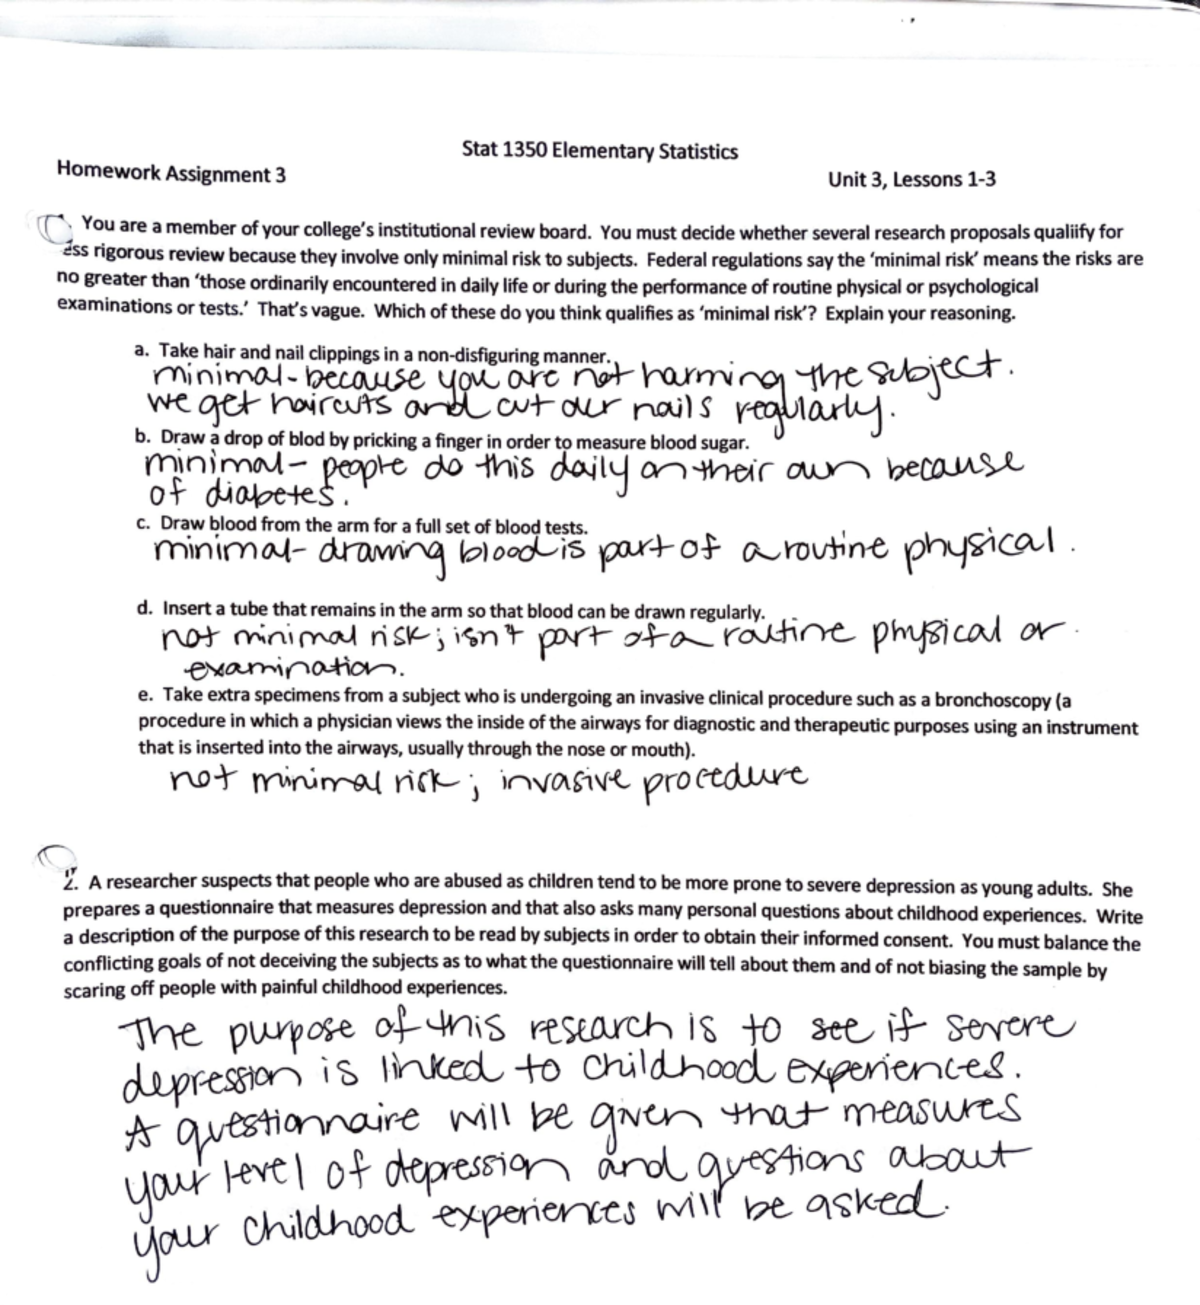 Stat 1350 Elementary Statistics
Homework Assignment 3
Unit 3, Lessons 1-3
You are a member of your college's institutional review board. You must decide whether several research proposals qualiify for
ess rigorous review because they involve only minimal risk to subjects. Federal regulations say the 'minimal risk' means the risks are
no greater than 'those ordinarily encountered in daily life or during the performance of routine physical or psychological
examinations or tests.' That's vague. Which of these do you think qualifies as 'minimal risk'? Explain your reasoning.
a. Take hair and nail clippings in a non-disfiguring manner.
minimal - because you are not harming the subject.
we get haircuts and cut our nails regularly.
b. Draw a drop of blod by pricking a finger in order to measure blood sugar.
minimal - people do this daily on their own because
of diabetes.
c. Draw blood from the arm for a full set of blood tests.
minimal - drawing blood is part of a routine physical.
d. Insert a tube that remains in the arm so that blood can be drawn regularly.
not minimal risk; isn't part of a routine physical or
examination.
e. Take extra specimens from a subject who is undergoing an invasive clinical procedure such as a bronchoscopy (a
procedure in which a physician views the inside of the airways for diagnostic and therapeutic purposes using an instrument
that is inserted into the airways, usually through the nose or mouth).
not minimal risk; invasive procedure
2. A researcher suspects that people who are abused as children tend to be more prone to severe depression as young adults. She
prepares a questionnaire that measures depression and that also asks many personal questions about childhood experiences. Write
a description of the purpose of this research to be read by subjects in order to obtain their informed consent. You must balance the
conflicting goals of not deceiving the subjects as to what the questionnaire will tell about them and of not biasing the sample by
scaring off people with painful childhood experiences.
The purpose of this research is to see if severe
depression is linked to childhood experiences.
A questionnaire will be given that measures
your level of depression and questions about
your childhood experiences will be asked.